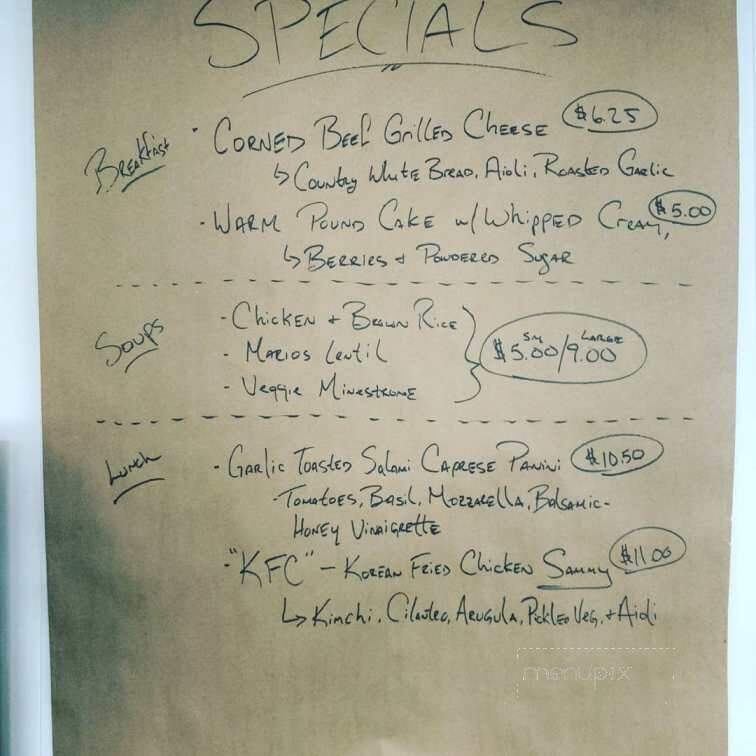 SPECIALS
Breakfast
· CORNED BEEF GRILLED CHEESE $6.25
↳ COUNTRY WHITE BREAD, AIOLI, ROASTED GARLIC
· WARM POUND CAKE w/ WHIPPED CREAM, $5.00
↳ BERRIES + POWDERED SUGAR
Soups
- CHICKEN + BROWN RICE
- MARIOS LENTIL
- VEGGIE MINESTRONE
SM LARGE
$5.00/9.00
Lunch
- GARLIC TOASTED SALAMI CAPRESE PANINI $10.50
- TOMATOES, BASIL, MOZZARELLA, BALSAMIC-
HONEY VINAIGRETTE
- "KFC" - KOREAN FRIED CHICKEN SAMMY $11.00
↳ KIMCHI, CILANTRO, ARUGULA, PICKLED VEG, + AIOLI
menupix